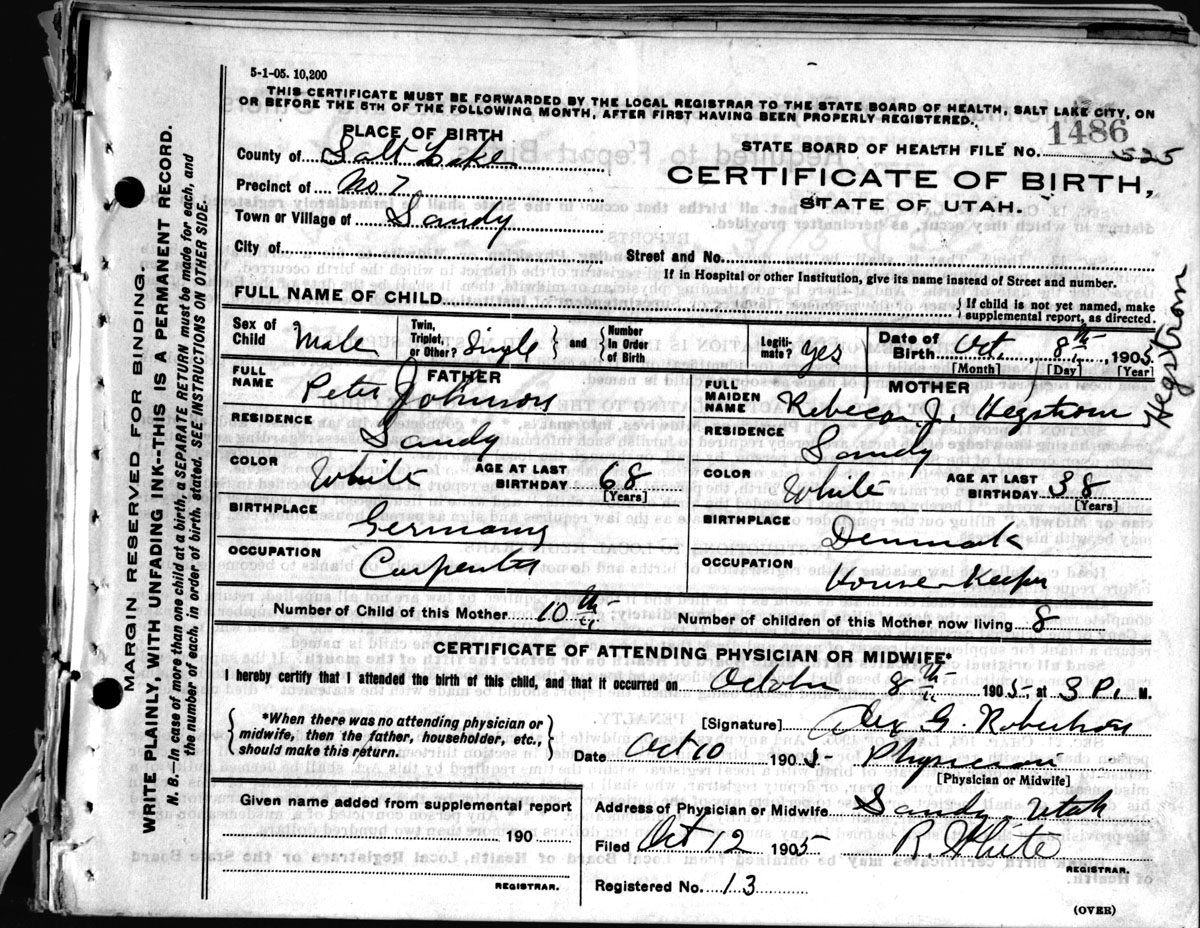 5-1-05. 10,200
THIS CERTIFICATE MUST BE FORWARDED BY THE LOCAL REGISTRAR TO THE STATE BOARD OF HEALTH, SALT LAKE CITY, ON
OR BEFORE THE 5TH OF THE FOLLOWING MONTH, AFTER FIRST HAVING BEEN PROPERLY REGISTERED.
PLACE OF BIRTH
1486
County of Salt Lake
STATE BOARD OF HEALTH FILE NO. 525
Precinct of No 7
CERTIFICATE OF BIRTH,
Town or Village of Sandy
STATE OF UTAH.
City of
Street and No.
If in Hospital or other Institution, give its name instead of Street and number.
FULL NAME OF CHILD
{ If child is not yet named, make
supplemental report, as directed.
Sex of Child Male
Twin, Triplet, or Other? Single } and { Number In Order of Birth
Legiti-mate? yes
Date of Birth Oct. 8th, 1905
[Month] [Day] [Year]
Hegstrom
FATHER
FULL NAME Peter Johnson
MOTHER
FULL MAIDEN NAME Rebecca J. Hegstrom
RESIDENCE Sandy
RESIDENCE Sandy
COLOR White AGE AT LAST BIRTHDAY 68 [Years]
COLOR White AGE AT LAST BIRTHDAY 38 [Years]
BIRTHPLACE Germany
BIRTHPLACE Denmark
OCCUPATION Carpenter
OCCUPATION House Keeper
Number of Child of this Mother 10th
Number of children of this Mother now living 8
CERTIFICATE OF ATTENDING PHYSICIAN OR MIDWIFE*
I hereby certify that I attended the birth of this child, and that it occurred on October 8th 1905, at 3 P. M.
{ *When there was no attending physician or
midwife, then the father, householder, etc.,
should make this return. }
[Signature] Alex G. Robertson
Date Oct 10 1905 Physician
[Physician or Midwife]
Given name added from supplemental report
190
REGISTRAR.
Address of Physician or Midwife Sandy, Utah
Filed Oct 12 1905 R. White
REGISTRAR.
Registered No. 13
(OVER)
MARGIN RESERVED FOR BINDING.
WRITE PLAINLY, WITH UNFADING INK--THIS IS A PERMANENT RECORD.
N. B.—In case of more than one child at a birth, a SEPARATE RETURN must be made for each, and
the number of each, in order of birth, stated. SEE INSTRUCTIONS ON OTHER SIDE.